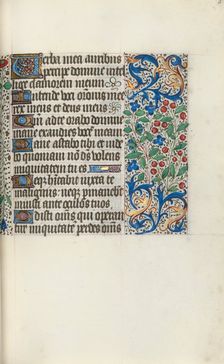 Verba mea auribus
percipe domine intel
lige clamorem meum
Intende voci orōnis mee
rex meus et deus meus
Qm̄ ad te orabo domine
mane exaudies vocē meam
Mane astabo tibi et vide
bo quoniam nō dꝰ volens
iniquitatem tu es
Neqꝫ hītabit iuxta te
malignus neqꝫ pmanebūt
iniusti ante oculos tuos
Odisti oīns qui operan
tur iniquitatē perdes oīns